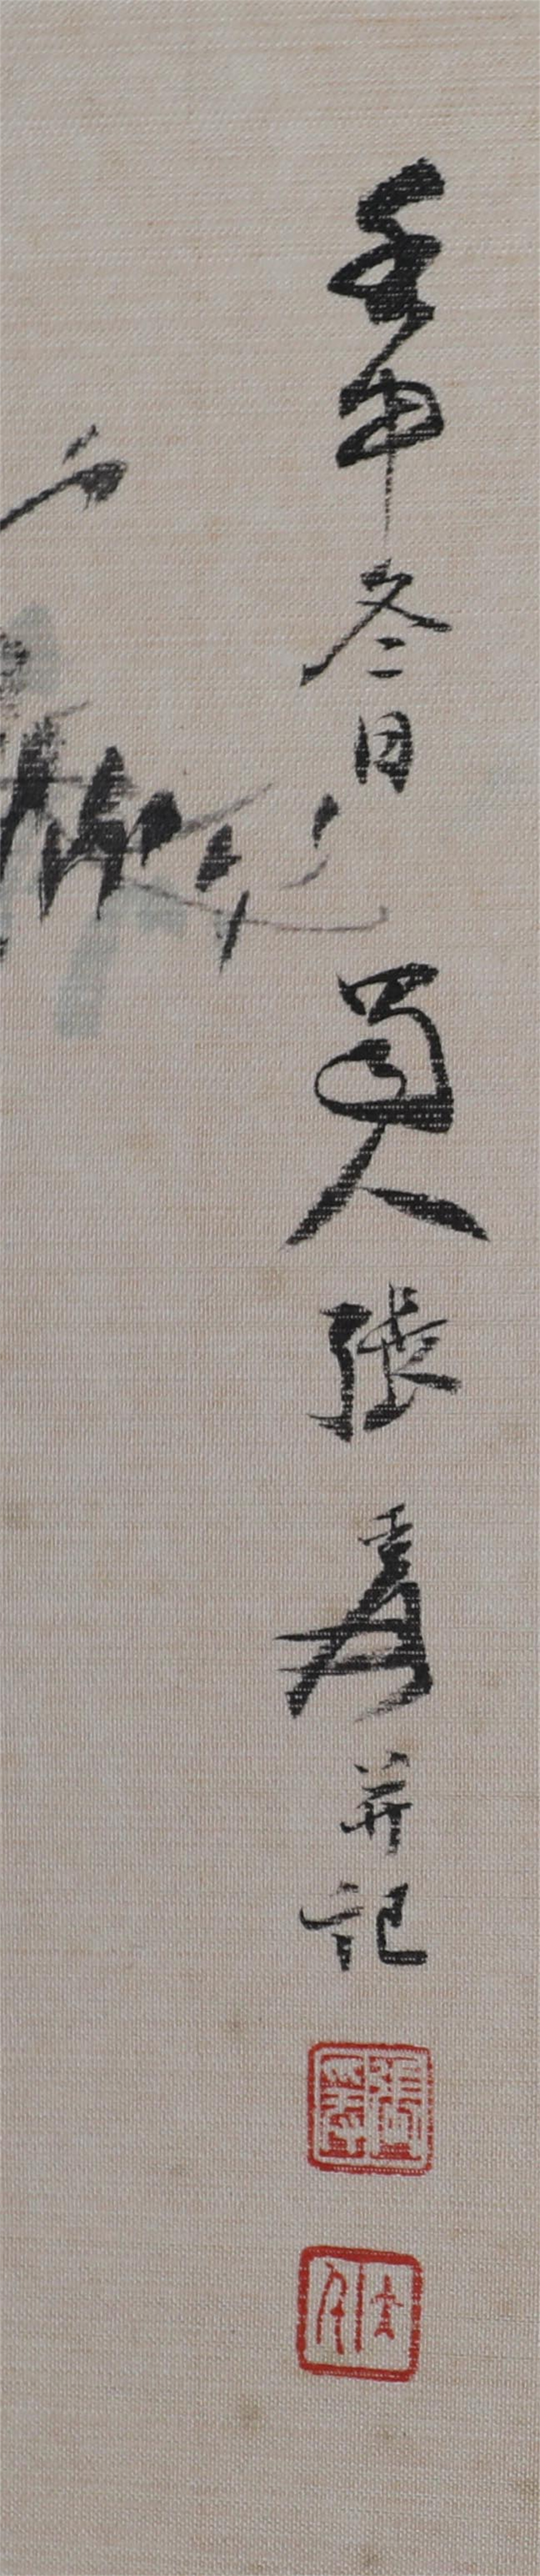 壬申冬日蜀人張爰并記
張爰
大千